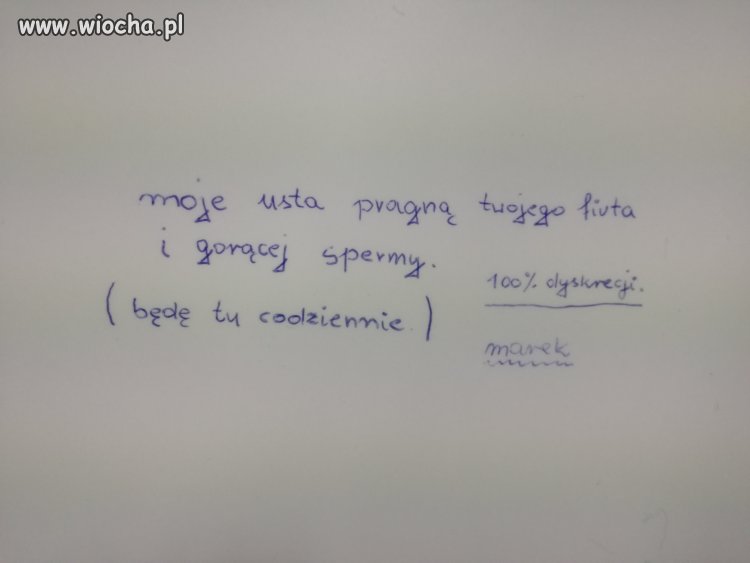 www.wiocha.pl
moje usta pragną twojego fiuta
i gorącej spermy.
100% dyskrecji.
(będę tu codziennie.)
marek